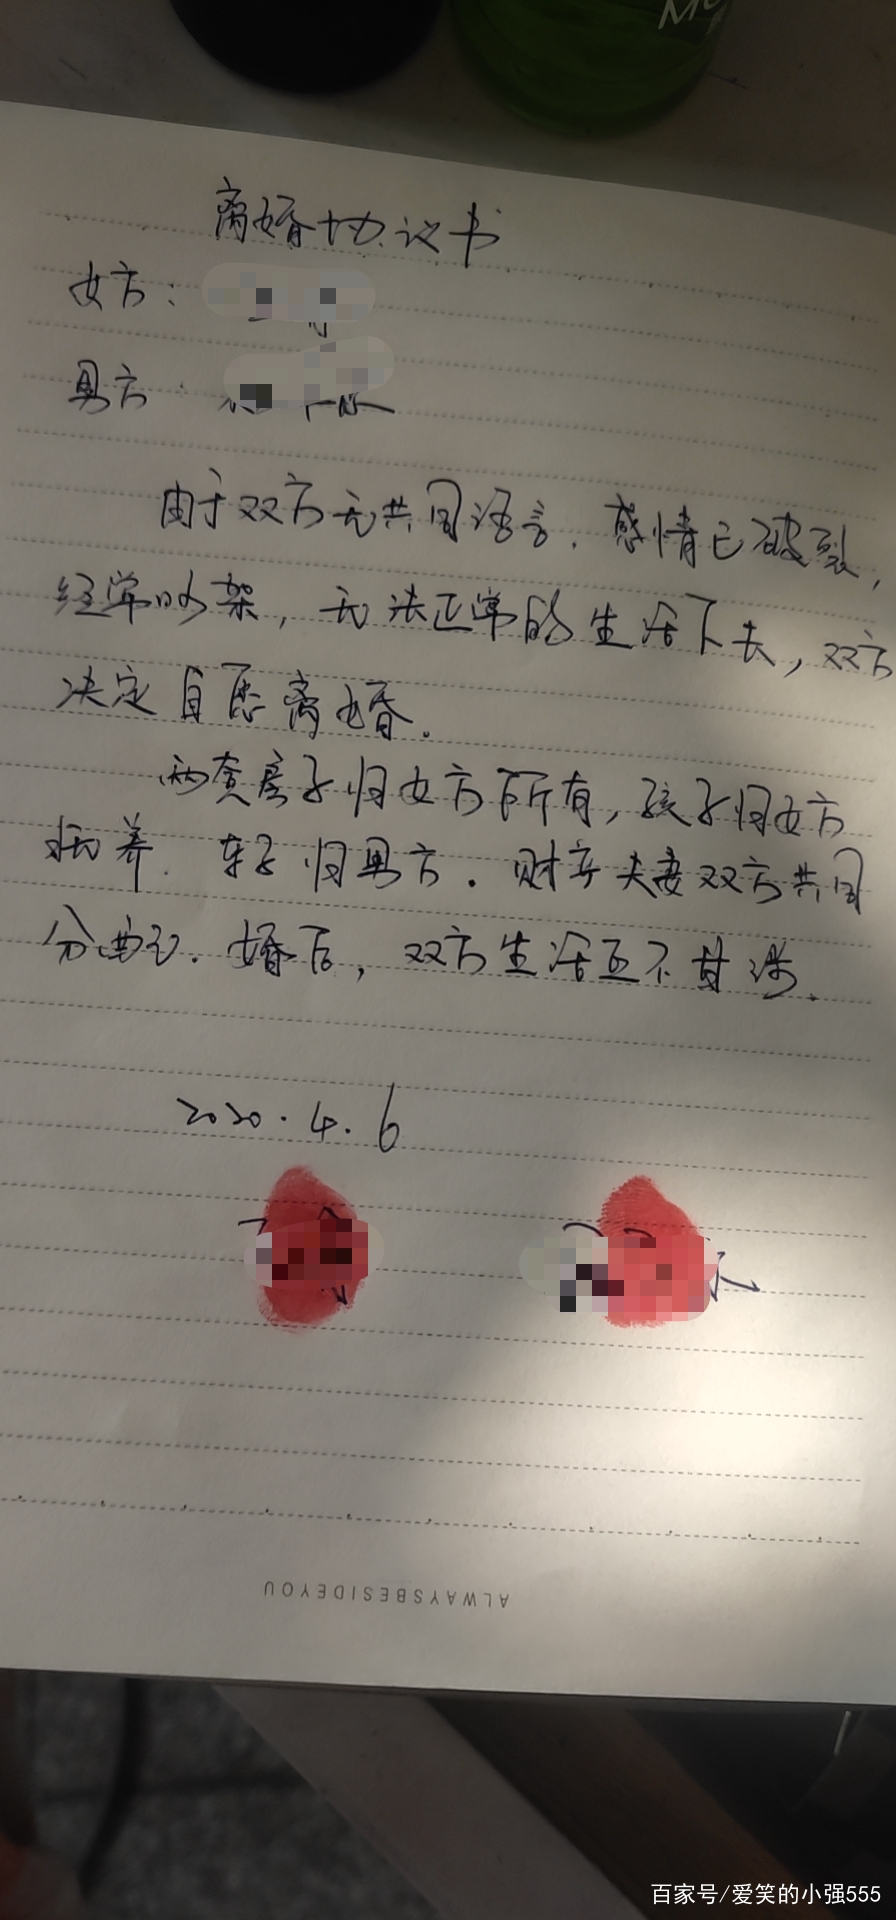 离婚协议书
女方：
男方：
由于双方无共同语言，感情已破裂，
经常吵架，无法正常的生活下去，双方
决定自愿离婚。
两套房子归女方所有，孩子归女方
抚养．车子归男方．财产夫妻双方共同
分配．婚后，双方生活互不甘涉．
2020.4.6
ALWAYSBESIDEYOU
百家号/爱笑的小强555